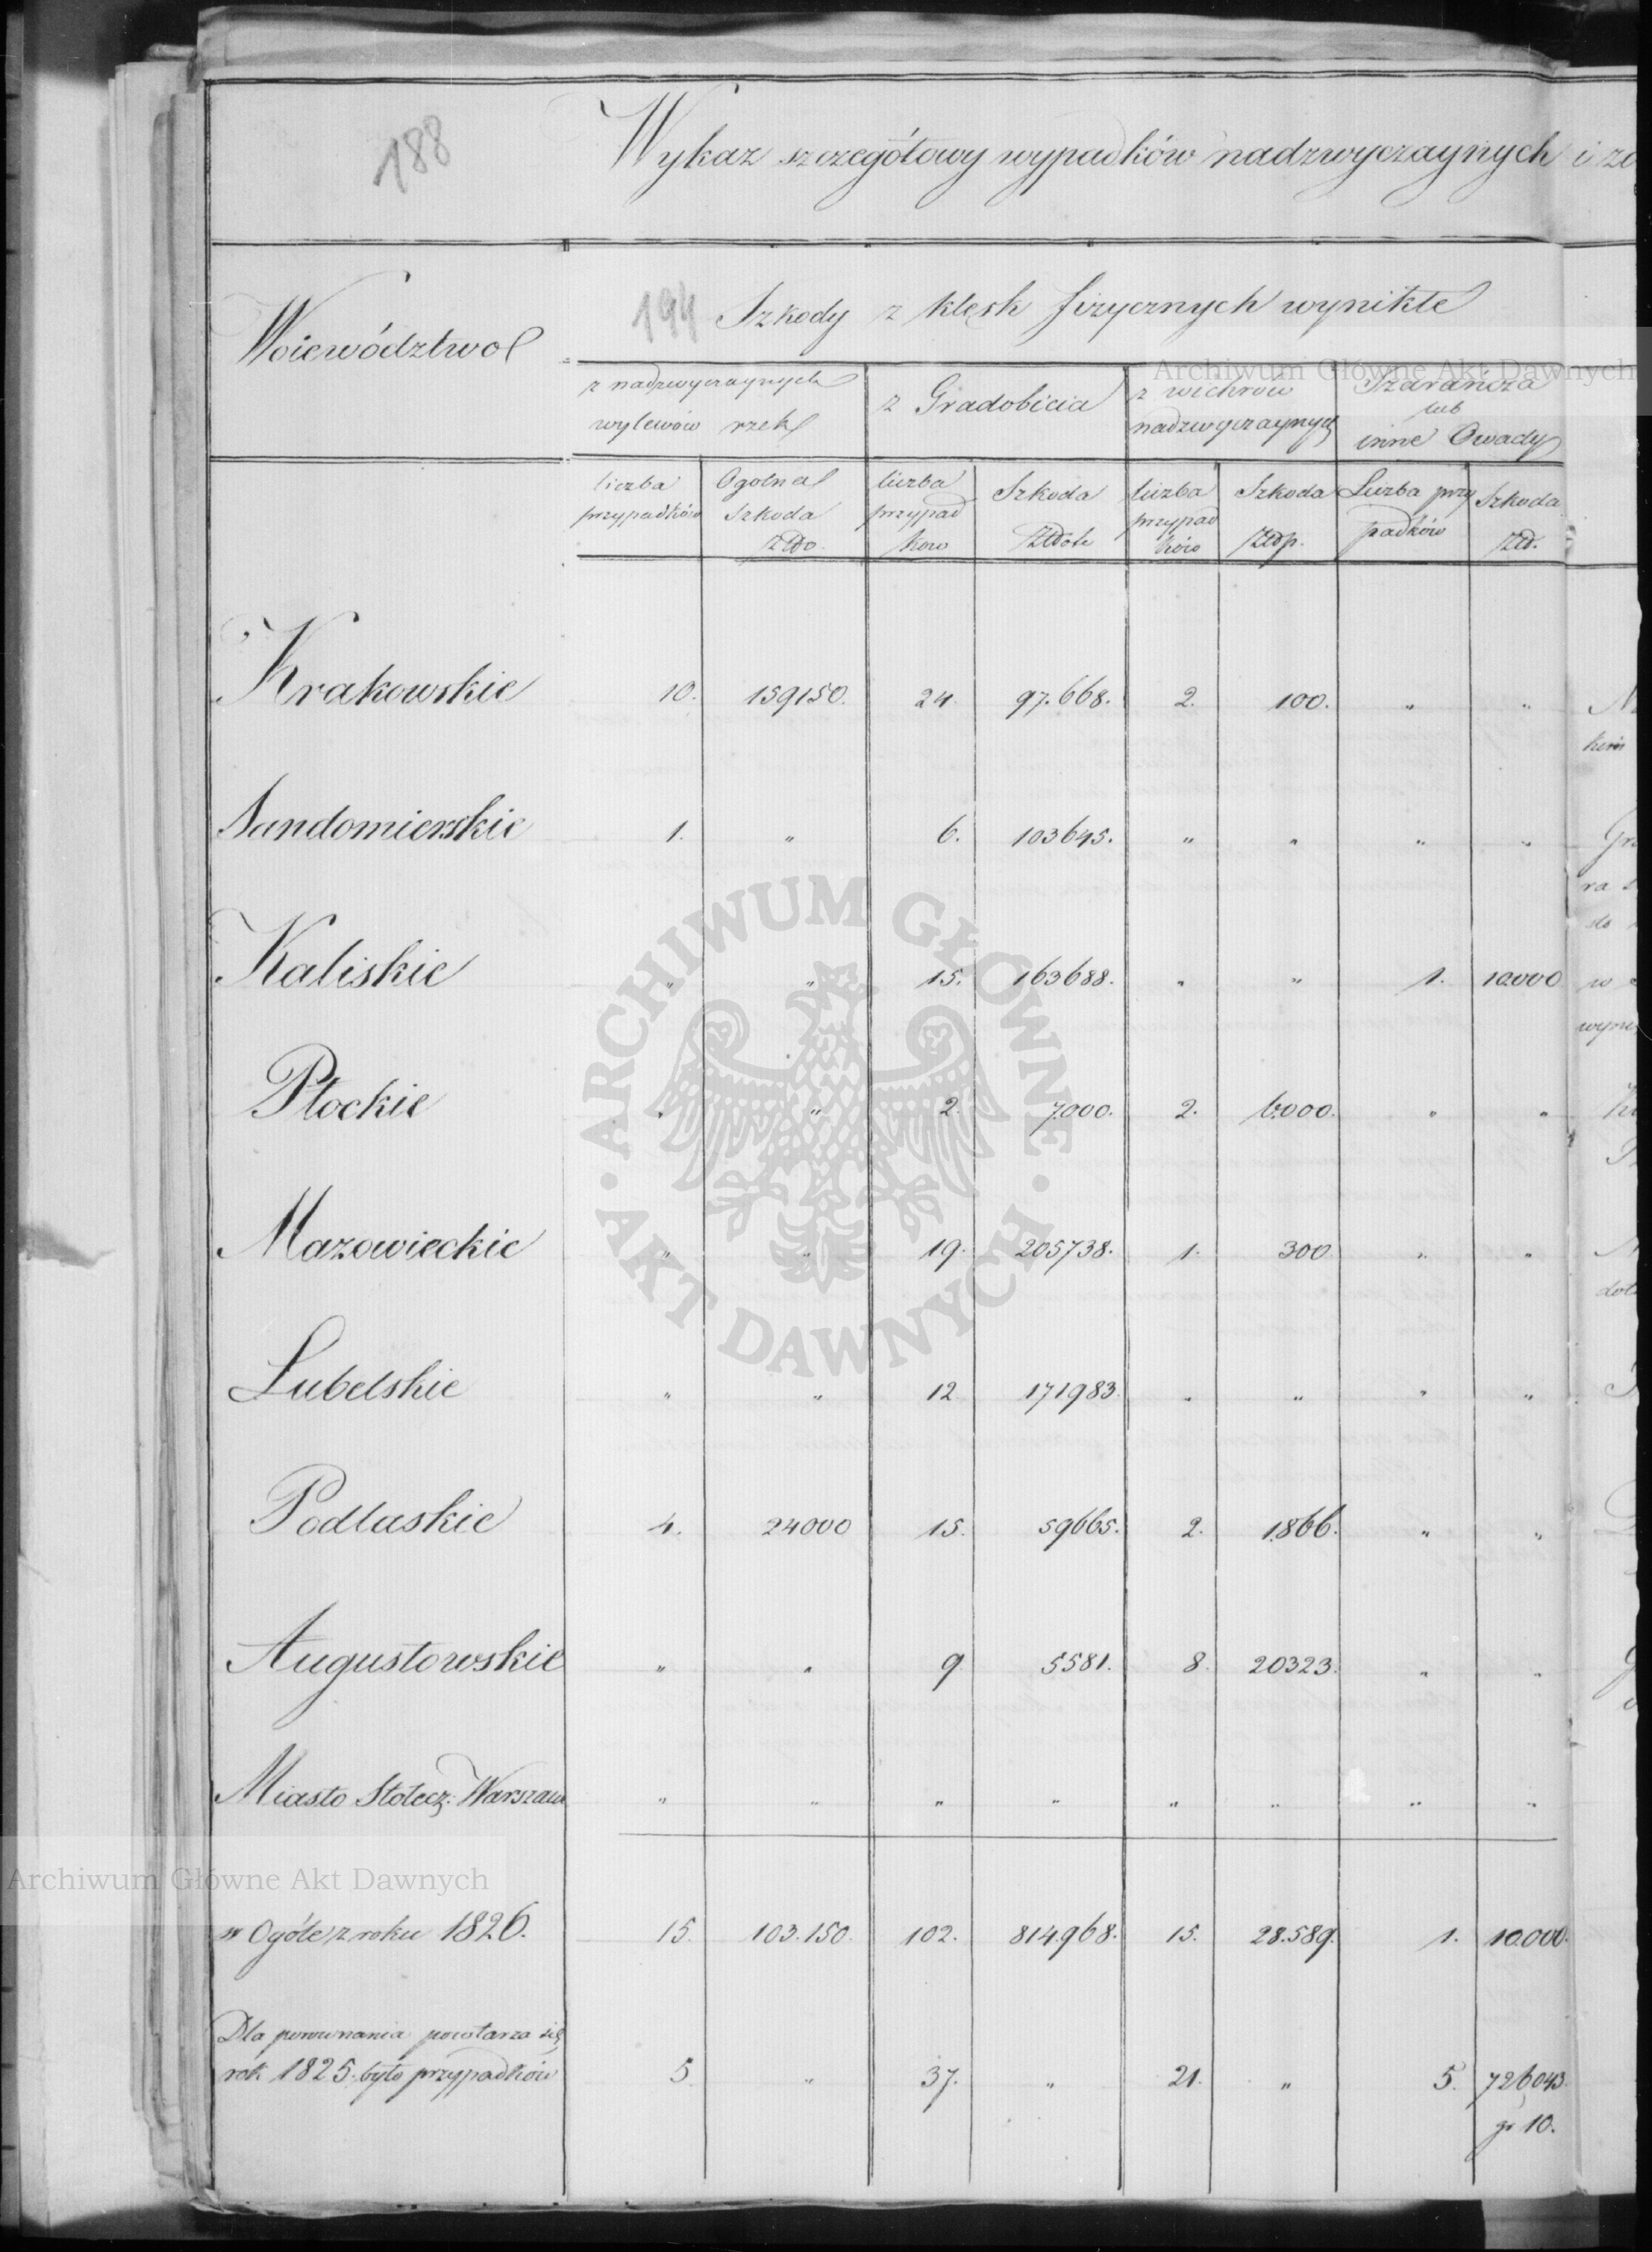 188
Wykaz szczegółowy wypadków nadzwyczaynych i
Woiewództwo
194 Szkody z klęsk fizycznych wynikłe
z nadzwyczaynych wylewów rzek
z Gradobicia
z wichrów nadzwyczaynych
Szarańcza lub inne Owady
liczba przypadków
Ogolna Szkoda Złło.
liczba przypadkow
Szkoda Złłote
liczba przypadków
Szkoda Złłp.
Liczba przypadków
Szkoda Złł.
Krakowskie 10. 159150. 24 97.668. 2. 100. " "
Sandomierskie 1. " 6. 103645. " " " "
Kaliskie " " 15. 163688. " " 1. 10.000
Płockie " " 2. 7.000. 2. 6.000. " "
Mazowieckie " " 19. 205738. 1. 300 " "
Lubelskie " " 12 171983. " " " "
Podlaskie 4. 24000 15. 59665. 2. 1.866. " "
Augustowskie " " 9 5581. 8. 20323. " "
Miasto Stołecz: Warszawa " " " " " " " "
w Ogóle z roku 1826. 15. 103.150. 102. 814.968. 15. 28.589. 1. 10.000.
Dla porownania powtarza się
rok 1825. było przypadków 5 " 37. " 21. " 5. 726043.
gr 10.
Archiwum Główne Akt Dawnych
ARCHIWUM GŁÓWNE · AKT DAWNYCH ·
Archiwum Główne Akt Dawnych